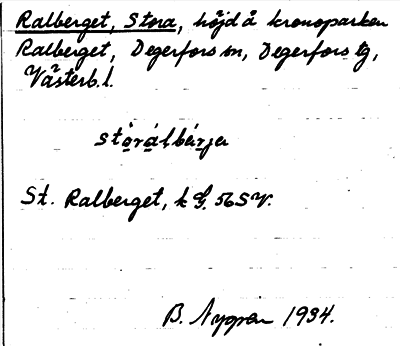 Ralberget, Stora, höjd å kronoparken
Ralberget, Degerfors sn, Degerfors tg,
Västerb. l.
St. Ralberget, k G. 56 SV.
B. Nygren 1934.